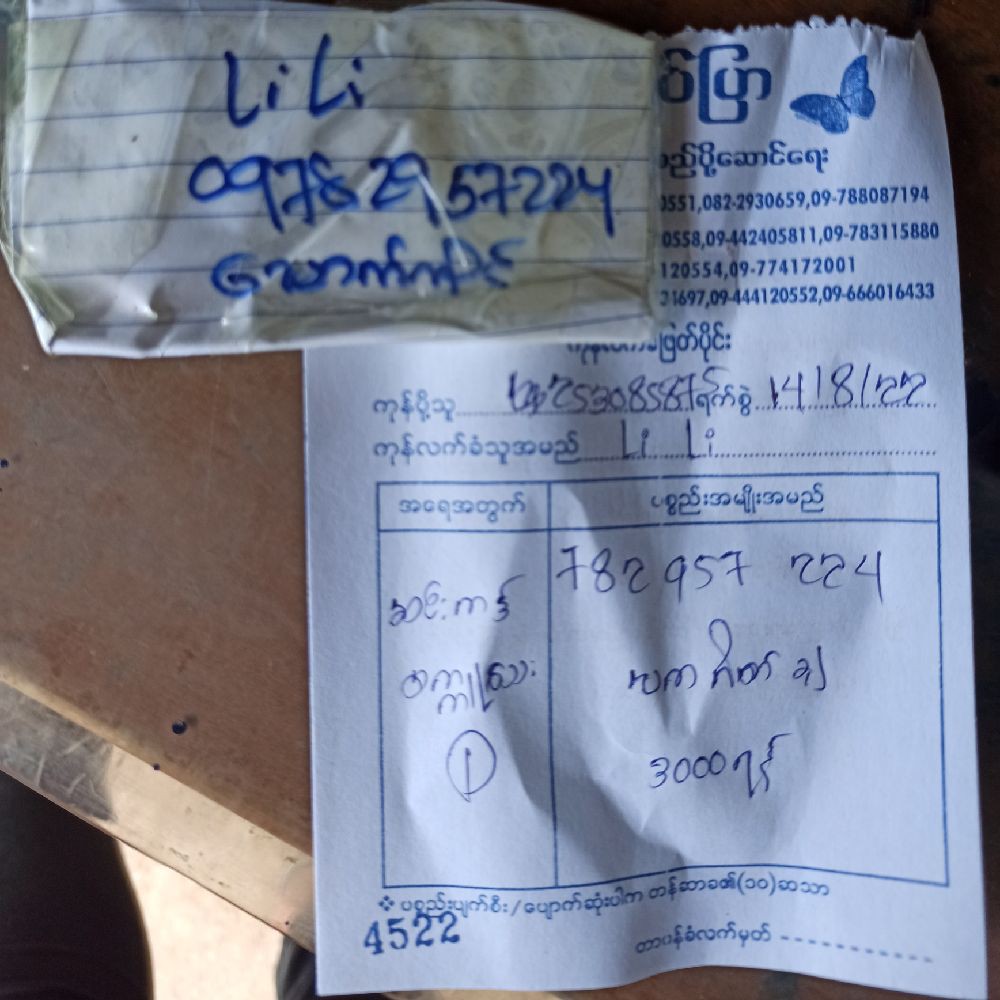 Li Li
09782957224
အောက်ကျင်း
ပြာ
ပို့ဆောင်ရေး
0551,082-2930659,09-788087194
0558,09-442405811,09-783115880
120554,09-774172001
31697,09-444120552,09-666016433
ဖြတ်ပိုင်း
ကုန်ပို့သူ ရက်စွဲ 14/8/22
ကုန်လက်ခံသူအမည် Li Li
အရေအတွက် ပစ္စည်းအမျိုးအမည်
782957 224
ဆင်းကဒ်
3000 ၇န်
❖ ပစ္စည်းပျက်စီး/ပျောက်ဆုံးပါက တန်ဆာခ၏(၁၀)ဆသာ
4522
တာဝန်ခံလက်မှတ်